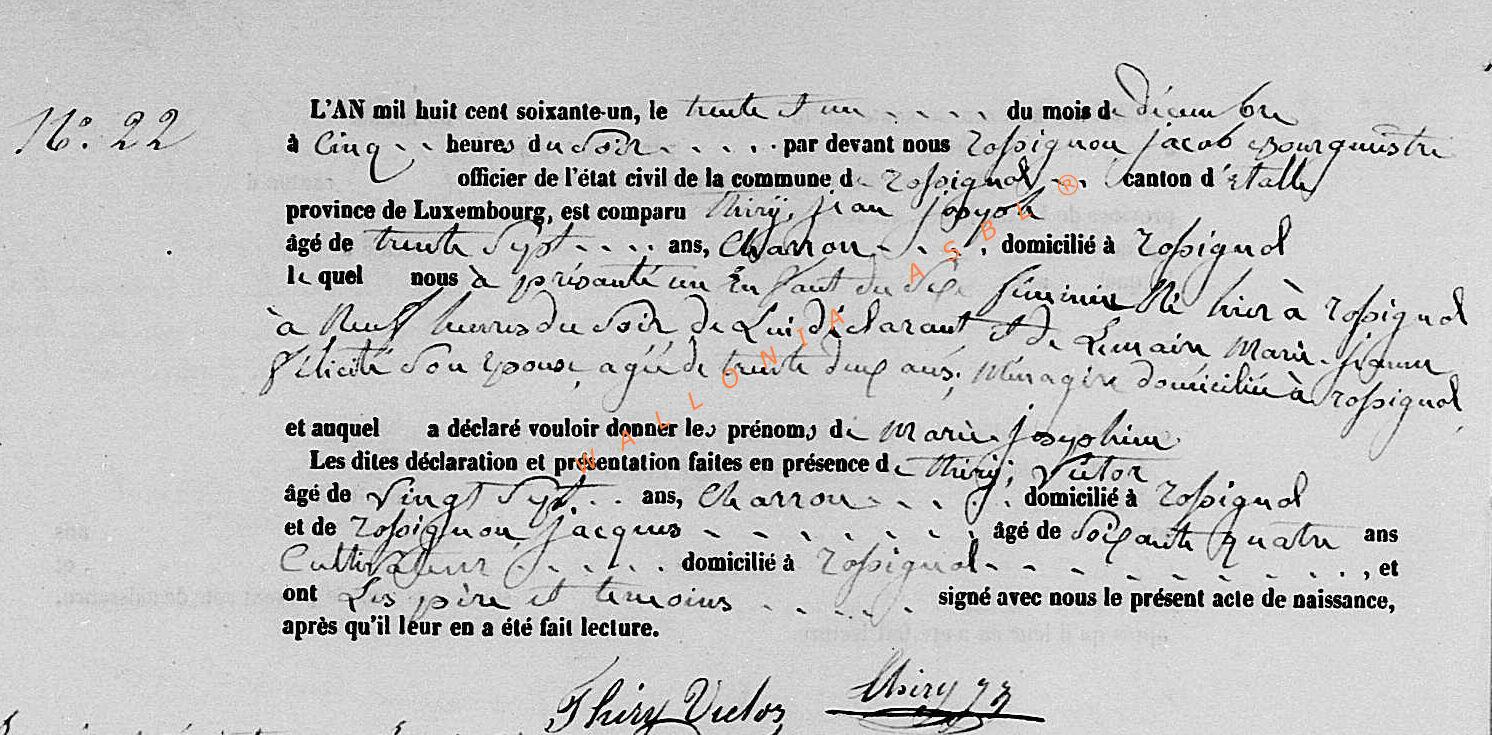 N.° 22
L'AN mil huit cent soixante-un, le trente et un du mois de décembre
à Cinq heures du Soir par devant nous Rossignon jacob Bourguestre
officier de l'état civil de la commune de rossignol canton d'Etalle
province de Luxembourg, est comparu thirÿ, jean josyph
âgé de trente Sept ans, Charron domicilié à rossignol
le quel nous à présanté un Enfant du Sexe féminin Né hier à rossignol
à Neuf heures du Soir de Lui déclarant et de Lemain Marie-jeanne
félicité Son Epouse, agée de trente deux ans, Ménagère domiciliée à rossignol
et auquel a déclaré vouloir donner les prénoms de Marie-josyphine
Les dites déclaration et présentation faites en présence de thirÿ, Victor
âgé de Vingt Sept ans, Charron domicilié à rossignol
et de rossignon, jacques âgé de Soixante quatre ans
Cultivateur domicilié à rossignol , et
ont Les père et temoins signé avec nous le présent acte de naissance,
après qu'il leur en a été fait lecture.
Thiry Victor Thiry JJ
WALLONIA ASBL ®